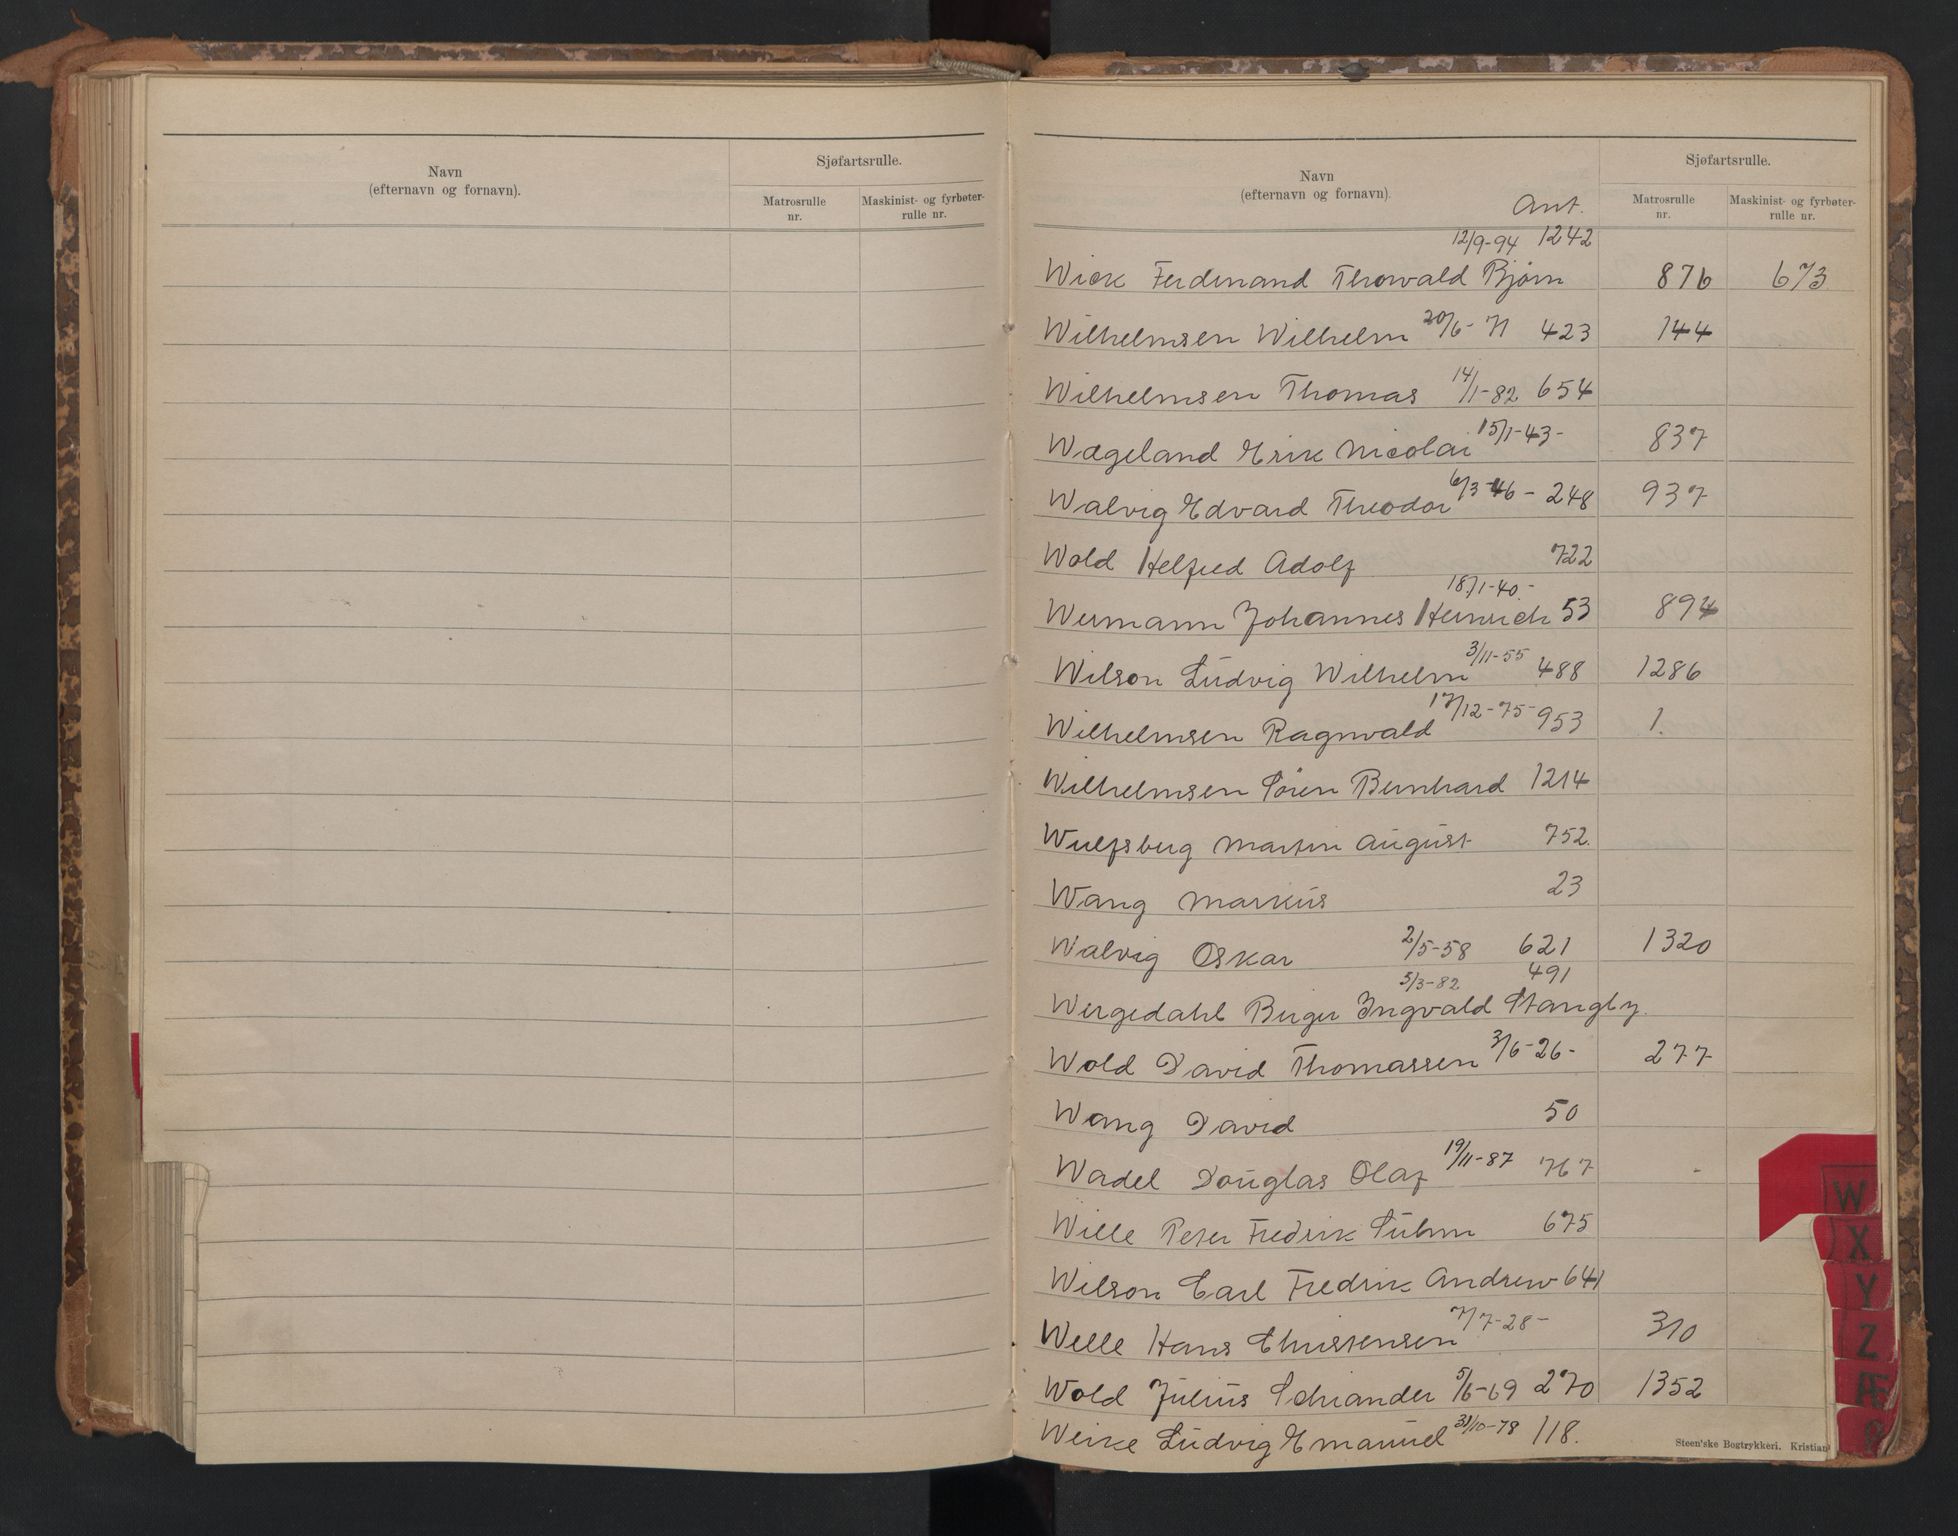 Navn
(efternavn og fornavn).
Sjøfartsrulle.
Matrosrulle
nr.
Maskinist- og fyrbøter-
rulle nr.
Navn
(efternavn og fornavn).
Ant.
Sjøfartsrulle.
Matrosrulle
nr.
Maskinist- og fyrbøter-
rulle nr.
12/9-94 1242
Wick Ferdinand Thorvald Bjørn 876 673
Wilhelmsen Wilhelm 20/6-71 423 144
Wilhelmsen Thomas 14/1-82 654
Wægeland Erik Nicolai 15/1-43- 837
Walvig Edvard Theodor 6/3-46- 248 937
Wold Helfred Adolf 722
18/1-40-
Weimann Johannes Heinrich 53 894
Wilson Ludvig Wilhelm 3/11-55 488 1286
Wilhelmsen Ragnvald 17/12-75- 953 1.
Wilhelmsen Sören Bernhard 1214
Wulfsberg Martin August 752.
Wang Markus 23
Walvig Oskar 2/5-58 621 1320
5/3-82 491
Wergedahl Birger Ingvald Stangby.
Wold David Thomassen 3/6-26- 277
Wang David 50
Wadel Douglas Olaf 19/11-87 767
Wille Peter Fredrik Suhm 675
Wilson Carl Fredrik Andrew 641
Wille Hans Christensen 7/7-28- 310
Wold Julius Schiander 5/6-69 270 1352
Weire Ludvig Emanuel 31/10-78 118.
Steen'ske Bogtrykkeri. Kristian
W
X
Y
Z
Æ